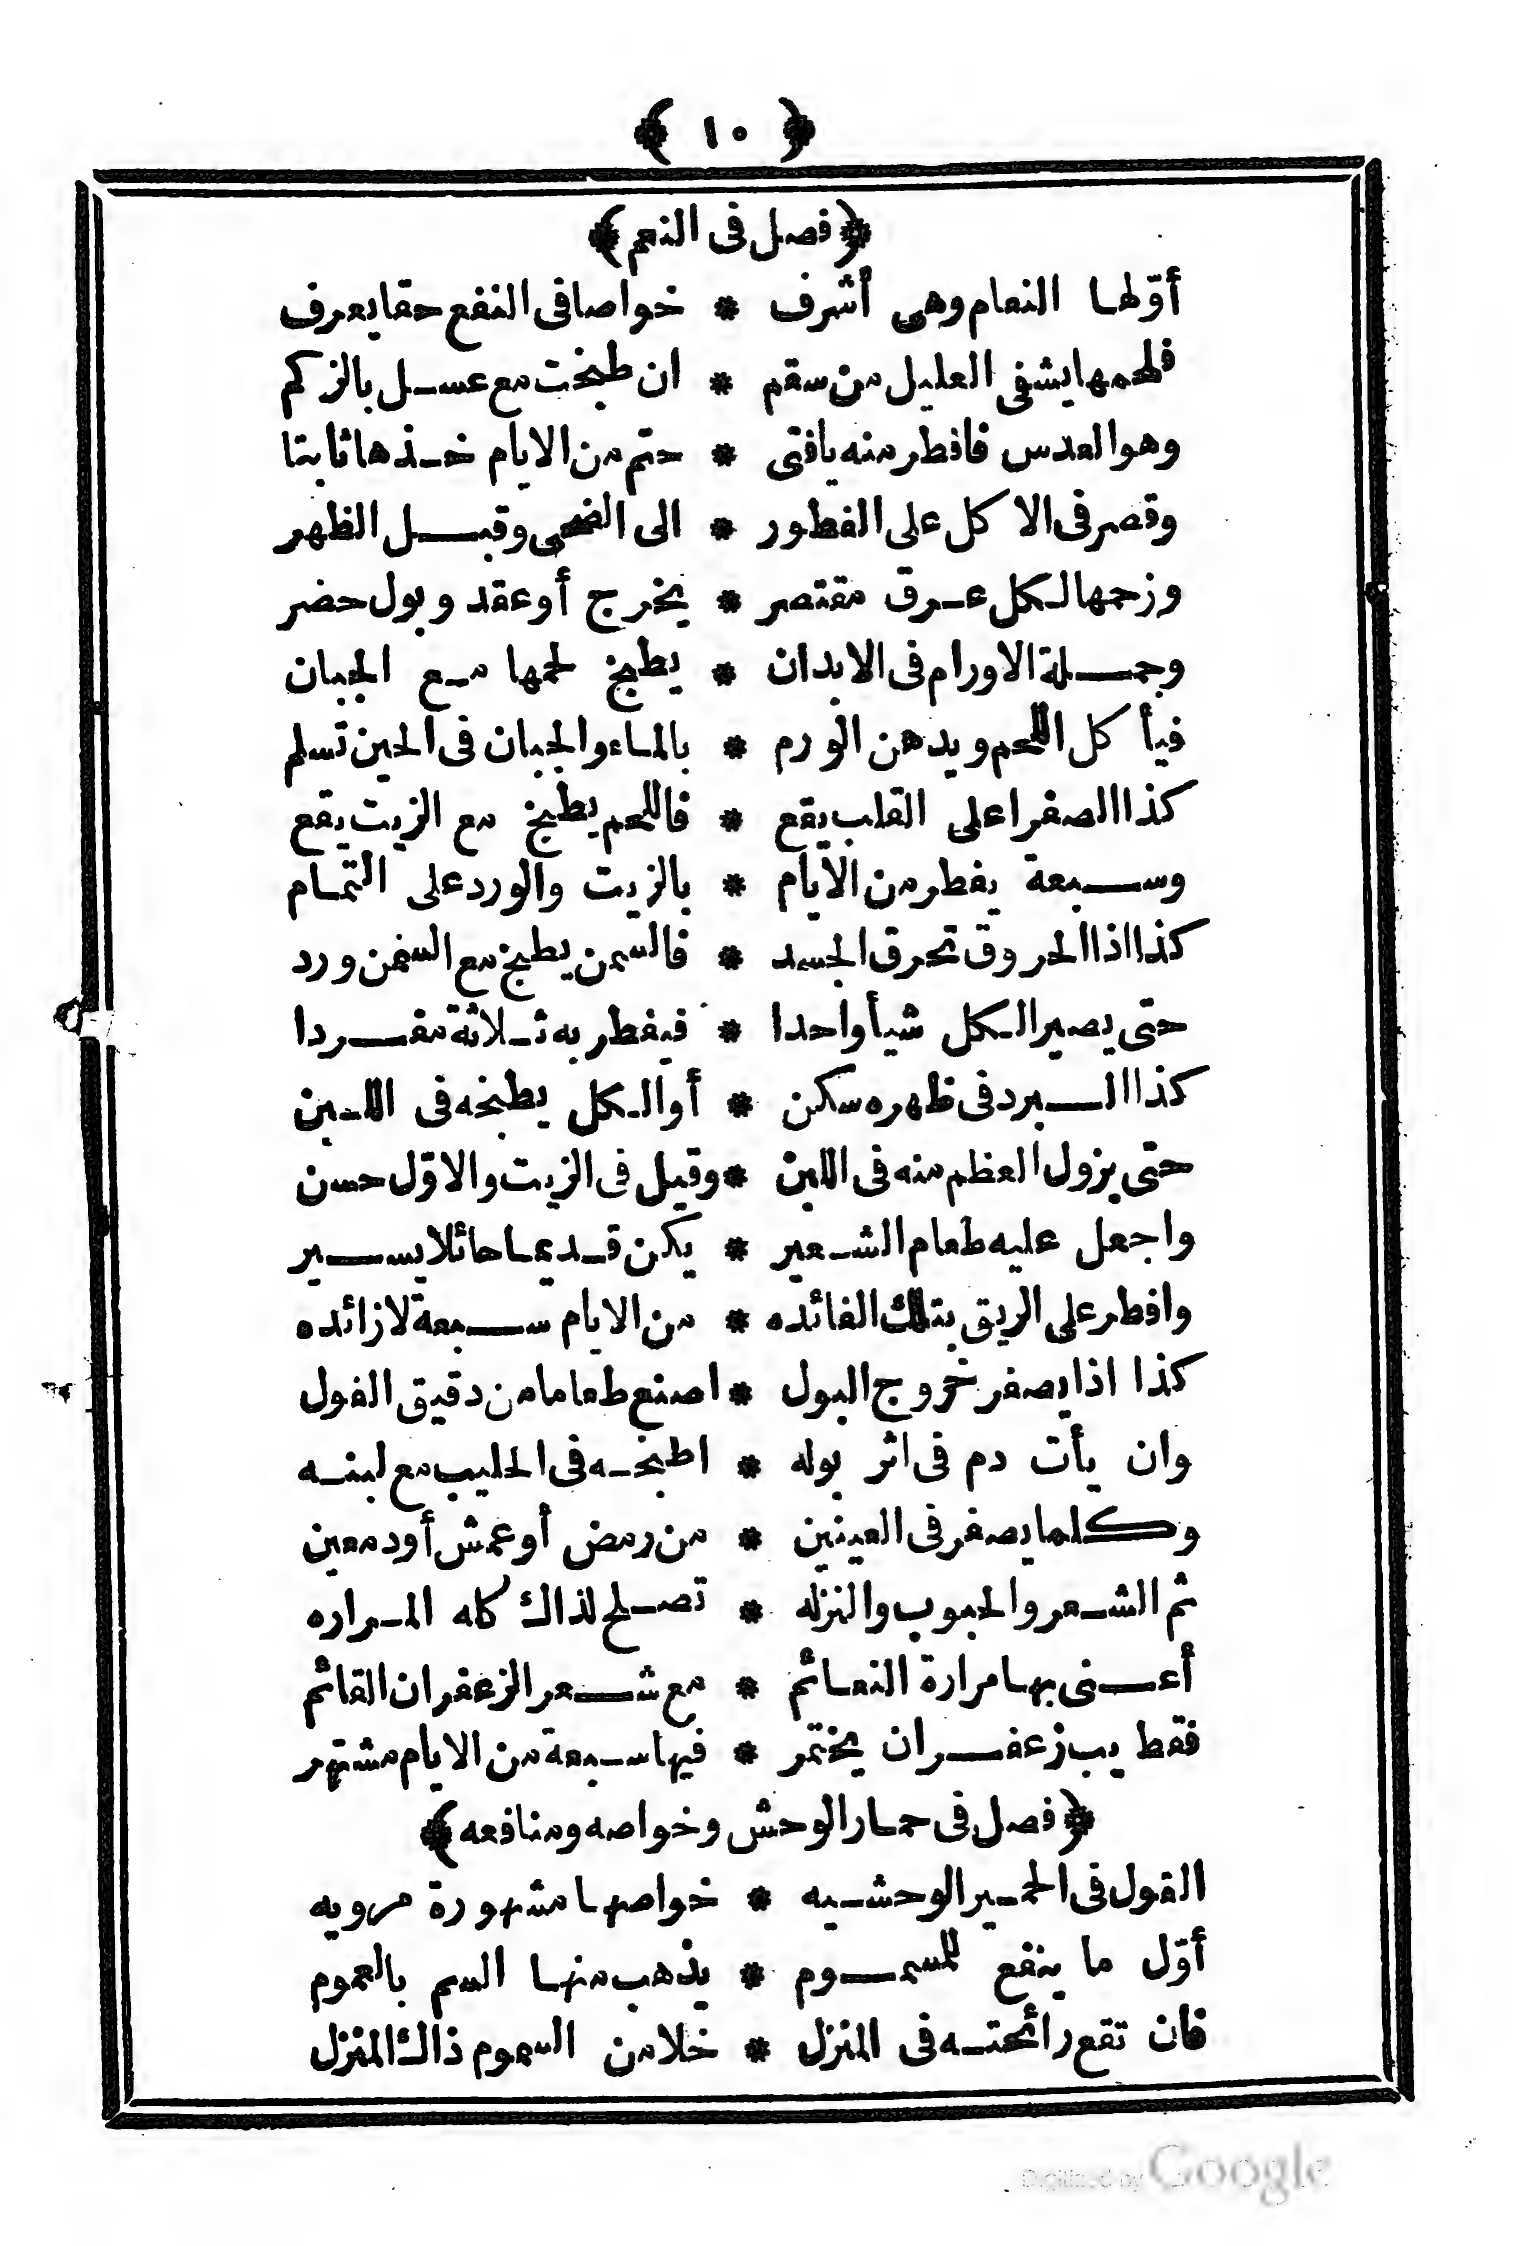 ﴿ ١٠ ﴾
﴿ فصل فى النعم ﴾
أوّلها النعام وهى أشرف * خواصا فى النفع حقا يعرف
فلحمها يشفى العليل من سقم * ان طبخت مع عسل بالزكم
وهو العدس فافطر منه يافتى * حتم من الايام خذها ثابتا
وقصر فى الاكل على الفطور * الى الضحى وقبل الظهر
وزحمها لكل عرق مقتصر * يخرج أو عقد وبول حضر
وجملة الاورام فى الابدان * يطبخ لحمها مع الجبان
فيأكل اللحم ويدهن الورم * بالماء والجبان فى الحين تسلم
كذا الصفرا على القلب يقع * فاللحم يطبخ مع الزيت يقع
وسبعة يفطر من الايام * بالزيت والورد على التمام
كذا اذا الحروق تحرق الجسد * فالسمن يطبخ مع السمن ورد
حتى يصير الكل شيأ واحدا * فيفطر به ثلاثة مفردا
كذا البرد فى ظهره سكن * أو الكل يطبخه فى اللبن
حتى يزول العظم منه فى اللبن * وقيل فى الزيت والاوّل حسن
واجعل عليه طعام الشعير * يكن قديما حائلا يسير
وافطر على الريق بتلك الفائده * من الايام سبعة لا زائده
كذا اذا يصفر خروج البول * اصنع طعاما من دقيق الفول
وان يأت دم فى اثر بوله * اطبخه فى الحليب مع لبنه
وكلما يصفر فى العينين * من رمض أو عمش أو دمعين
ثم الشعر والحبوب والنزله * تصلح لذاك كله المراره
أعنى بها مرارة النعائم * مع شعر الزعفران القائم
فقط يب زعفران يختمر * فيها سبعة من الايام مشتهر
﴿ فصل فى حمار الوحش وخواصه ومنافعه ﴾
القول فى الحمير الوحشيه * خواصها مشهورة مرويه
أوّل ما ينفع للمسموم * يذهب منها السم بالعموم
فان تقع رائحته فى المنزل * خلا من السموم ذاك المنزل
Digitized by Google